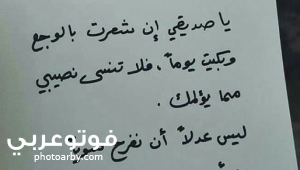 يا صديقي إن شعرت بالوجع
وبكيت يوماً، فلا تنسى نصيبي
مما يؤلمك.
ليس عدلاً أن نفرح سوياً
فوتوعربي
photoarby.com